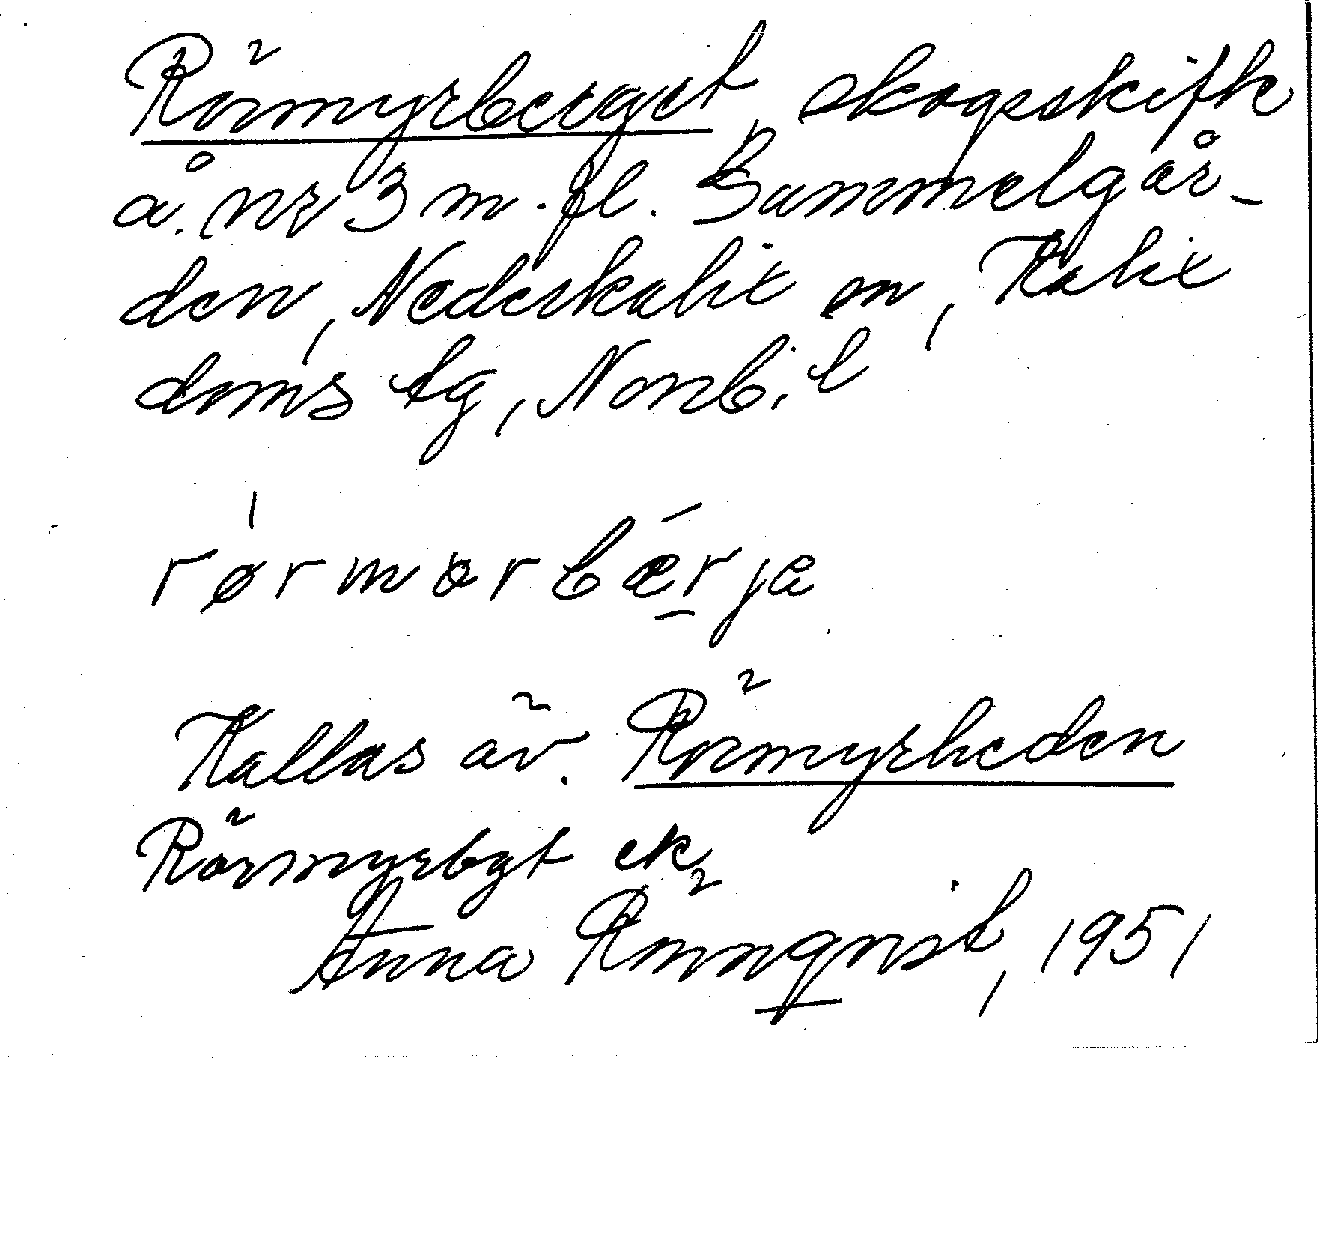 Rörmyrberget, skogsskifte
å nr 3 m. fl. Gammelgår-
den, Nederkalix sn, Kalix
doms tg, Norrb. l
rørmorbærja
Kallas äv. Rörmyrheden
Rörmyrbgt ek
Anna Rönnqvist, 1951